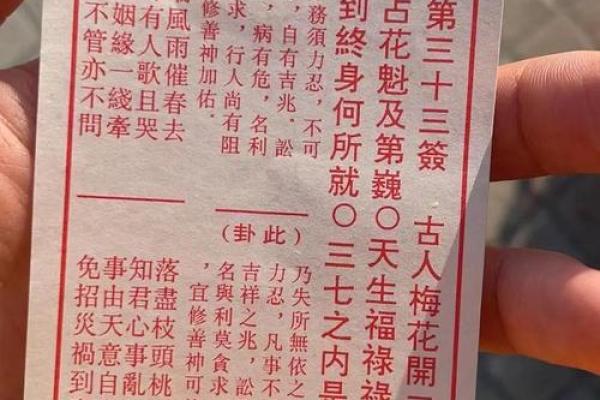 第三十三簽　古人梅花開
占花魁及第巍○天生福祿祿
到終身何所就○三七之内是
務須力忍，不可
，自有吉兆．訟
，病有危，名利
求，行人尚有阻
修善神加佑．
風雨催春去
有人歌且哭
姻緣一綫牽
不管亦不問
（此卦）
乃失所無依之
力忍，凡事不
吉祥之兆，訟
名與利莫貪求
，宜修善神可
落盡枝頭桃
知君心事亂
事由天意自
免招災禍到